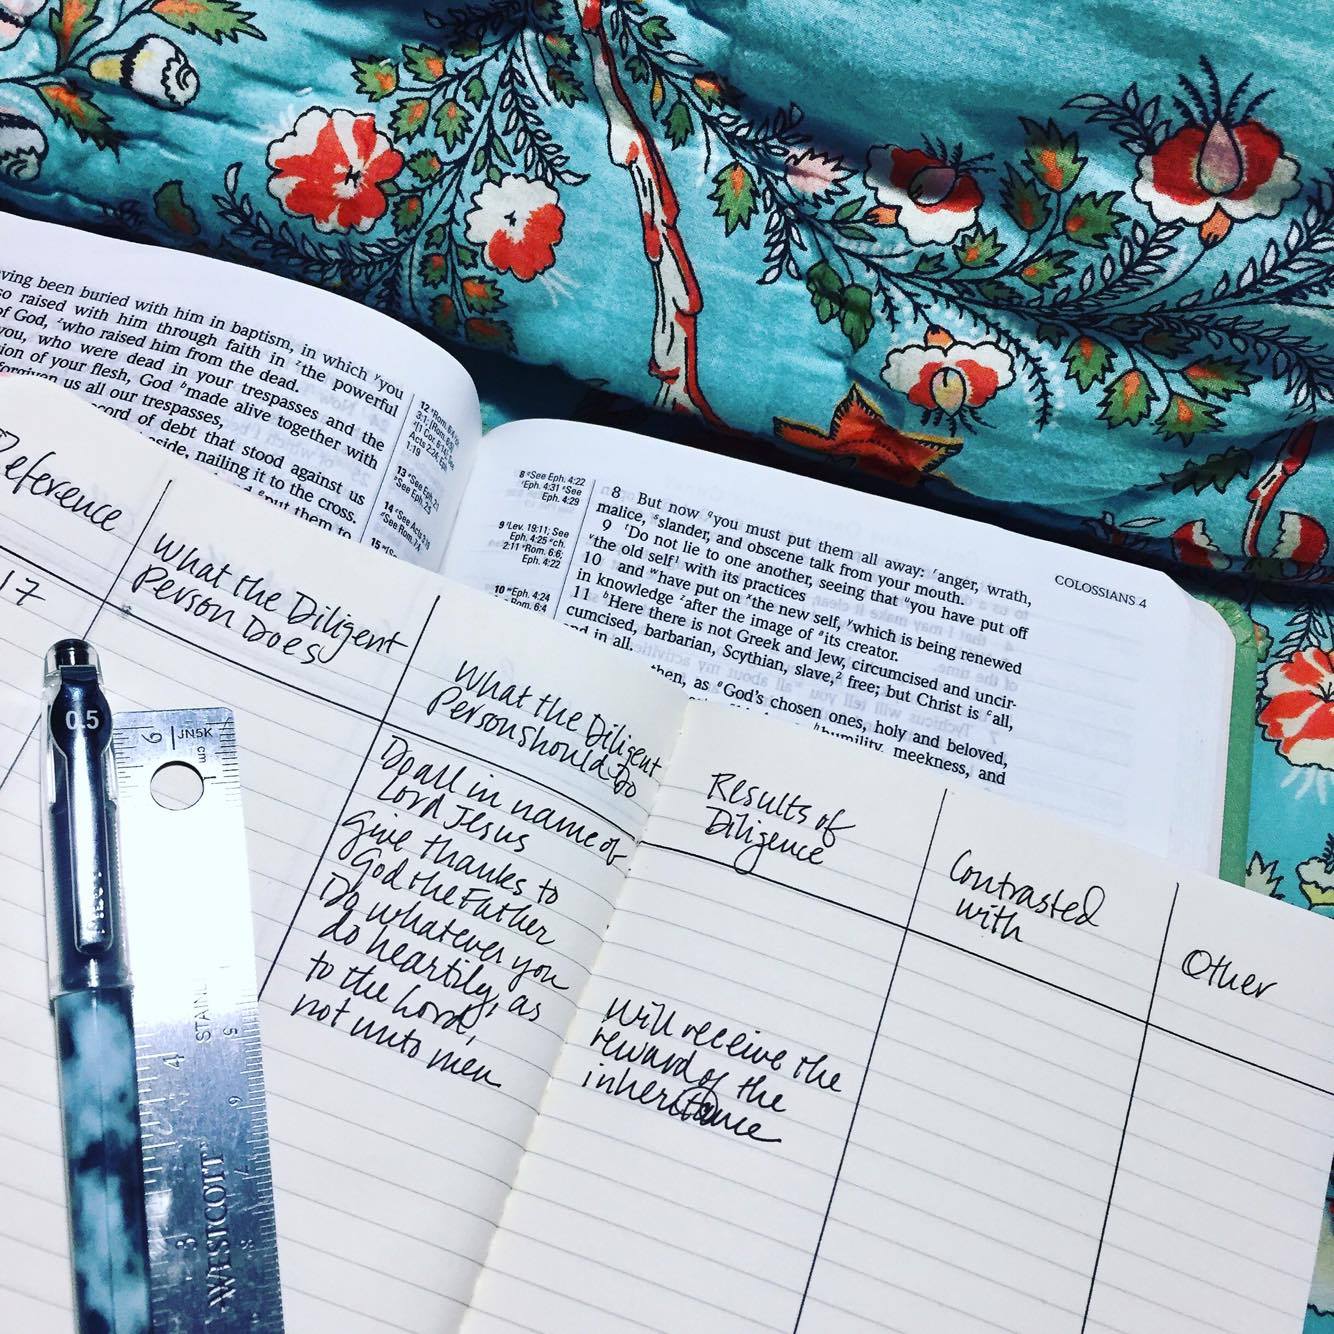 ving been buried with him in baptism, in which ʸyou
so raised with him through faith in ᶻthe powerful
of God, ᶻwho raised him from the dead.
you, who were dead in your trespasses and the
sion of your flesh, God ᵇmade alive together with
forgiven us all our trespasses,
cord of debt that stood against us
aside, nailing it to the cross.
put them to
12
Acts 2:24
1:19
13 See Eph. 2:1
See Eph.
14 See Acts 3:19
See Rom. 7:4
15
8 See Eph. 4:22
Eph. 4:31 See
Eph. 4:29
9 Lev. 19:11; See
Eph. 4:25 ch.
2:11 Rom. 6:6;
Eph. 4:22
10 Eph. 4:24
Rom. 6:4
COLOSSIANS 4
8 But now you must put them all away: anger, wrath,
malice, slander, and obscene talk from your mouth.
9 Do not lie to one another, seeing that you have put off
the old self with its practices
10 and have put on the new self, which is being renewed
in knowledge after the image of its creator.
11 Here there is not Greek and Jew, circumcised and uncir-
cumcised, barbarian, Scythian, slave,² free; but Christ is all,
and in all.
then, as God's chosen ones, holy and beloved,
humility, meekness, and
Reference
17
What the Diligent
Person Does
What the Diligent
Person should Do
Do all in name of
Lord Jesus
Give thanks to
God the Father
Do whatever you
do heartily, as
to the Lord,
not unto men
Results of
Diligence
Will receive the
reward of the
inheritance
Contrasted
with
Other
0.5
6
JN5K
cm
STAINL
5
4
6
7
3
WESTCOTT